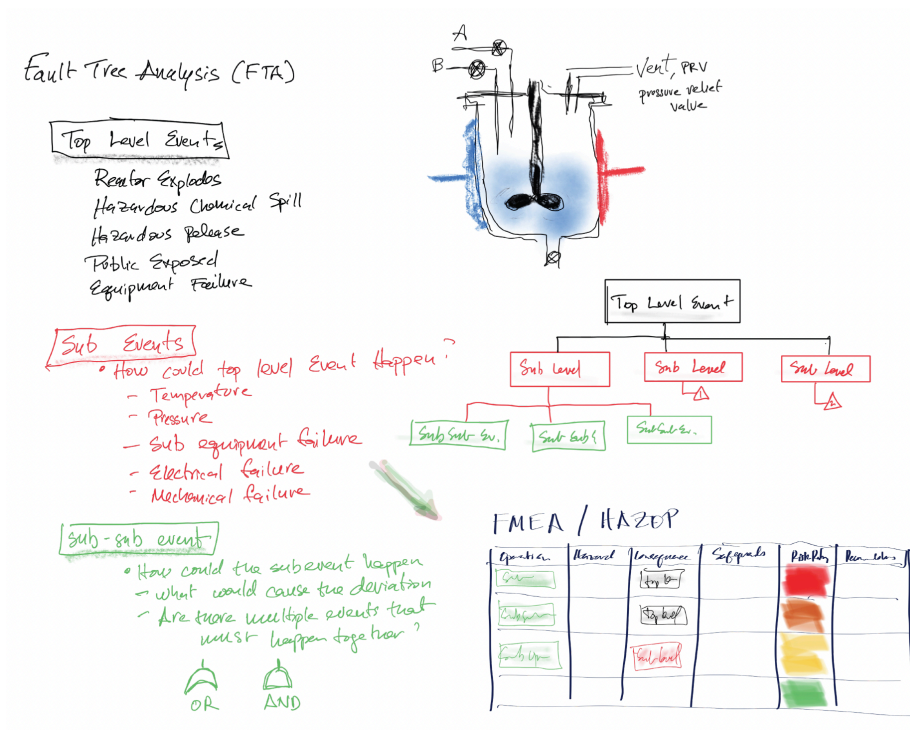 Fault Tree Analysis (FTA)
Top Level Events
Reactor Explodes
Hazardous Chemical Spill
Hazardous Release
Public Exposed
Equipment Failure
A
B
Vent, PRV
pressure relief
valve
Sub Events
• How could top level Event Happen?
- Temperature
- Pressure
- Sub equipment failure
- Electrical failure
- Mechanical failure
sub-sub event
• How could the subevent happen
- what would cause the deviation
- Are there multiple events that
must happen together?
OR
AND
Top Level Event
Sub Level
Sub Level
Sub Level
1
2
SubSub Ev.
Sub Sub
SubSub Ev.
FMEA / HAZOP
Operation Hazard Consequence Safeguards
top
top level
Sub level